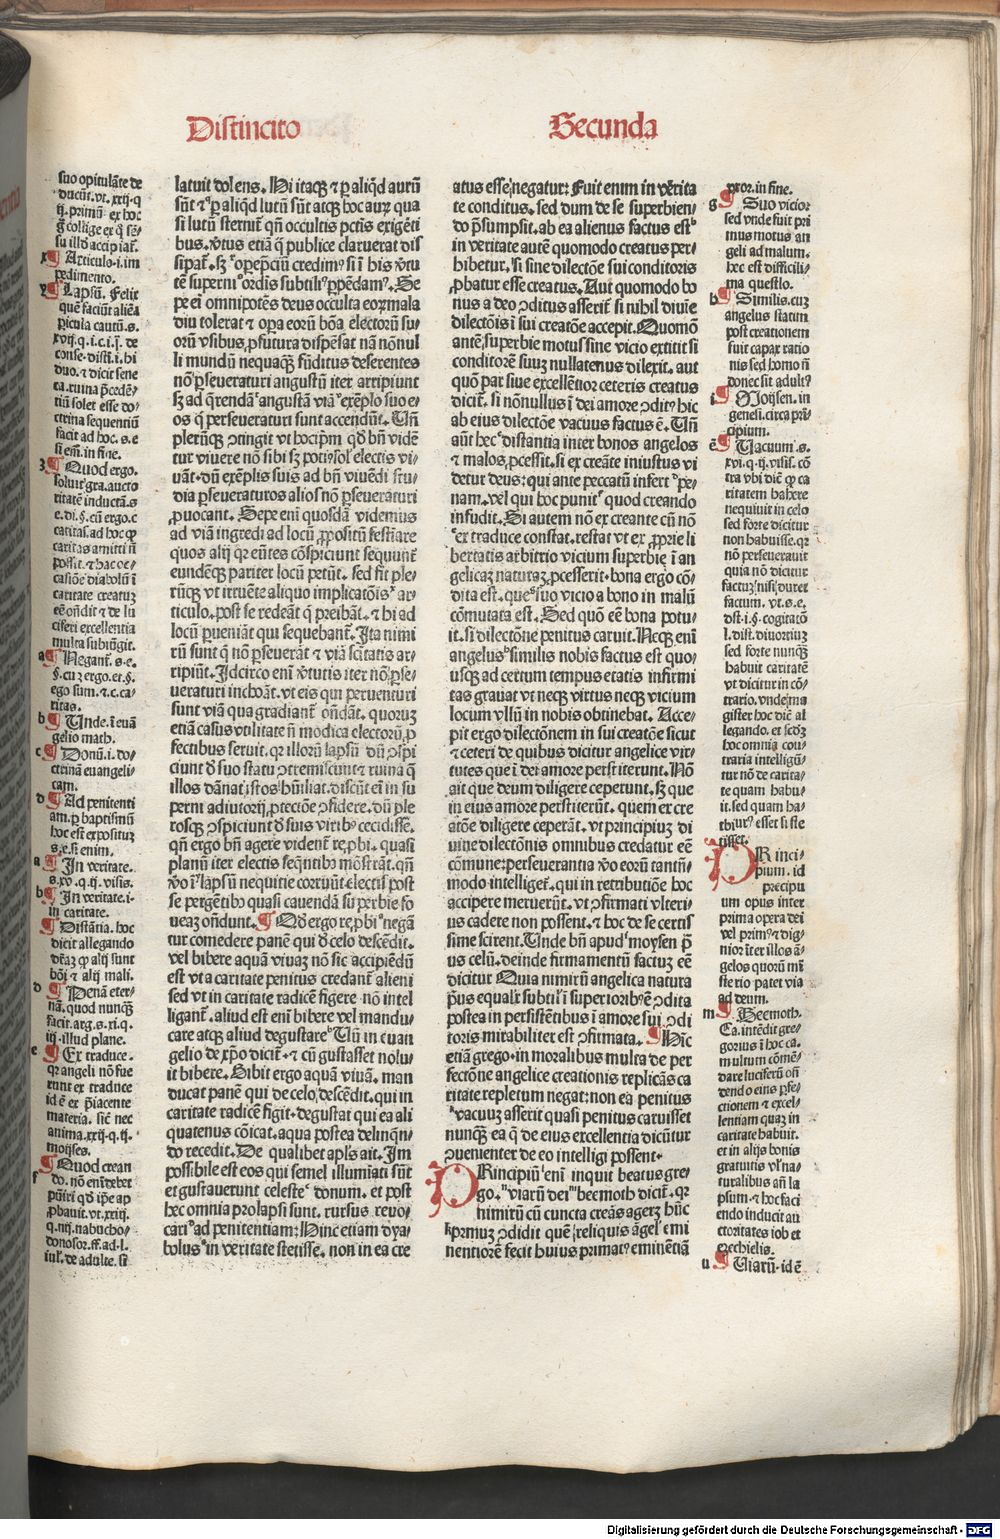 Distincito Secunda
suo opitulãte de
ducũt.vt.xxij.q
ij.primũ ex hoc
collige ex
su illd accipiat.
x ¶ Articulo.i.im
pedimento.
y ¶ Lapsũ. Felix
quẽ faciũt aliẽa
pericula cautũ.s.
xvij.q.i.c.i.
conse.disti.i.hi
duo. dicit sene
ca.ruina
tiũ solet esse do
ctrina sequentiũ
facit ad hoc.s.e
si em̃.in fine.
z ¶ Quod ergo.
soluit gra.aucto
ritatẽ inductã.s
caritas.ad hoc
caritas amitti
casiõe diaboli ĩ
caritate creatus
ciferi excellentia
multa subiũgit.
a ¶ Negant.s.e.
ego sum.
ritas.
b ¶ Unde.i euã
gelio math.
c ¶ Donũ.i.do/
ctrinã euangeli
cam.
d ¶ Ad penitenti
am.p baptismũ
hoc est expositus
s.e.si enim.
a ¶ In veritate.
s.xv.q.ij.visis.
b ¶ In veritate.i.
in caritate.
¶ Distãtia.hoc
dicit allegando
alij sunt
bõi alij mali.
d ¶ Penã eter/
nã.quod nunq̃
facit.arg.s.xi.q.
iij.illud plane.
e ¶ Ex traduce.
qr angeli nõ fue
runt ex traduce
id ẽ ex piacente
materia. sic̃ nec
anima.xxij.q.ij.
moises.
f ¶ Quod crean
do.
q.iiij.nabucho/
donosor.ff.ad.l.
iul.de adulte.si
latuit dolens. Hi itaq̃ p aliqd aurũ
sũt p aliqd lutũ sũt atq̃ hoc aurũ qua
si lutũ sternit qñ occultis pctis exigẽti
bus.vtus etiã q publice claruerat dis
pe eĩ omnipotẽs deus occulta eorũ mala
diu tolerat opera eorũ bõa electorũ su/
orũ vsibus profutura dispẽsat nã nõnul
li mundũ nequaq̃ fũditus deserentes
nõ perseueraturi angustũ iter arripiunt
sz ad angustã viã exẽplo suo e/
os q perseueraturi sunt accendũt. Uñ
plerũq̃ ɔtingit vt hoc ipm qd bñ vidẽ
tur viuere nõ sibi sz electis vi/
uãt.dũ exẽplis suis ad bñ viuẽdi stu/
dia perseueraturos alios nõ perseueraturi
prouocant. Sepe enĩ quosdã videmus
ad viã ingredi ad locũ propositũ festiare
quos alij qr eũtes cõspiciunt sequunt
eundẽq̃ pariter locũ petũt. sed fit ple/
rũq̃ vt irruẽte aliquo implicatõis ar/
ticulo.post se redeãt q preibãt. hi ad
locũ perueniãt qui sequebant. Ita nimi
rũ sunt q nõ perseuerãt viã scitatis ar/
ripiũt. Idcirco enĩ vtutis iter nõ perse/
ueraturi inchoãt.vt eis qui peruenturi
sunt viã qua gradiant oñdãt. quoruz
etiã casus vtilitate nõ modica electorũ pro
fectibus seruit.qr illorũ lapsũ dũ ɔspi
ciunt suo statu ɔtremiscunt ruina q
illos dãnat istos hũiliat. discũt em̃ in su
perni adiutorij ptectiõe ɔfidere. dũ ple
rosq̃ ɔspiciunt suis viribus cecidisse.
qñ ergo bñ agere vident reprobi. quasi
planũ iter electis seqntibus mõstrãt.qñ
vo ĩ lapsũ nequitie corruũt electis post
se pergẽtibus quasi cauendã supbie fo
ueaz oñdunt. ¶ Qd ergo reprobi negã
tur comedere panẽ qui de celo descẽdit.
vel bibere aquã viuaz nõ sic accipiẽdũ
est vt a caritate penitus credant alieni
sed vt in caritate radicẽ figere nõ intel
ligant.aliud est enĩ bibere vel mandu/
care atq̃ aliud degustare Uñ in euan
gelio de xpo dicit. cũ gustasset nolu/
it bibere. Bibit ergo aquã viuã. man
ducat panẽ qui de celo descẽdit.qui in
caritate radicẽ figit.degustat qui ea ali
quatenus cõicat.aqua postea delinqn/
do recedit. De qualibet apls ait. Im
possibile est eos qui semel illumiati sũt
et gustauerunt celeste donum. et post
hec omnia prolapsi sunt. rursus reuo/
cari ad penitentiam: Hinc etiam dya/
bolus in veritate stetisse. non in ea cre
atus esse negatur: Fuit enim in vẽrita
te conditus. sed dum de se superbien/
do psumpsit.ab ea alienus factus est
in veritate autẽ quomodo creatus per/
hibetur. si sine dilectõe sui conditoris
probatur esse creatus. Aut quomodo bo
nus a deo ɔditus asserit si nihil diuĩe
dilectõis ĩ sui creatõe accepit. Quomõ
antẽ superbie motus sine vicio extitit si
conditorẽ suuz nullatenus dilexit. aut
quõ par siue excellẽtior ceteris creatus
dicit. si nõ nullus ĩ dei amore ɔdit hic
ab eius dilectõe vacuus factus ẽ. Uñ
aũt hec distantia inter bonos angelos
malos processit. si ex creãte iniustus vi
detur deus: qui ante peccatũ infert pe/
nam.vel qui hoc punit quod creando
infudit. Si autem nõ ex creante cũ nõ
ex traduce constat.restat vt ex proprie li
bertatis arbitrio vicium superbie ĩ an
gelicaz naturaz processerit.bona ergo cõ/
dita est.que suo vicio a bono in malũ
cõmutata est. Sed quõ eẽ bona potu/
it.si dilectõne penitus caruit. Necq̃ enĩ
angelus similis nobis factus est quo/
usq̃ ad certum tempus etatis infirmi
tas grauat vt neq̃ virtus neq̃ vicium
locum vllũ in nobis obtinebat. Acce/
pit ergo dilectõnem in sui creatõe sicut
ceteri de quibus dicitur angelice vir/
tutes que ĩ dei amore perstiterunt. Nõ
ait que deum diligere ceperunt.sz que
in eius amore perstiterũt.quem ex cre
atõe diligere ceperãt.vt principiuz di
uine dilectõnis omnibus credatur eẽ
cõmune:perseuerantia vo eorũ tantũ/
modo intelliget.qui in retributiõe hoc
accipere meruerũt.vt ɔfirmati vlteri/
us cadere non possent. hoc de se certis
sime scirent. Unde bñ apud moysen
us celũ.deinde firmamentũ factuz eẽ
dicitur Quia nimirũ angelica natura
prius equalr subtilĩ superioribus ẽ ɔdita
postea in persistẽtibus ĩ amore sui ɔdi
toris mirabiliter est ɔfirmata. ¶ Hic
etiã grego.in moralibus multa de per
fectõne angelice creationis replicãs ca
ritate repletum negat: non ea penitus
vacuuz asserit quasi penitus caruisset
nunq̃ ea q de eius excellentia dicũtur
ɔuenienter de eo intelligi possent.
PRincipiũ enĩ inquit beatus gre/
go. viarũ dei beemoth dicit.qr
nimirũ cũ cuncta creãs agerz hũc
primuz ɔdidit quẽ reliquis ãgel emi
nentiorẽ fecit huius primat eminẽtiã
pxor.in fine.
g ¶ Suo vicior
sed vnde fuit pri
mus motus an
geli ad malum.
hec est difficili/
ma questlo.
h ¶ Similis.cuz
angelus statim
post creationem
fuit capax ratio
nis sed homo ñ
donec sit adult
i ¶ Moysen.in
genesi.circa pri
cipium.
¶ Uacuum.s.
xvi.q.ij.visis.cõ
tra vbi dic̃ q ca
ritatem habere
nequiuit in celo
sed forte dicitur
non habuisse.qr
nõ perseuerauit
quia nõ dicitur
factuz nisi duret
factum. vt.s.e.
dist.i.§.cogitatõ
l.dist.diuortiuz
sed forte nunq̃
habuit caritatẽ
vt dicitur in cõ/
trario.vnde ma
gister hoc dic̃ al
legando. et
hoc omnia con/
traria intelligũ/
tur nõ de carita/
te quam habu/
it.sed quam ha/
biturus esset si ste
tisset.
PRinci/
pium. id
precipu
um opus inter
prima opera dei
vel primus dig/
nior iter illos ã/
gelos quorũ mi
sterio patet via
ad deum.
m ¶ Beemoth.
Ca.intẽdit gre/
gorius ĩ hoc ca.
multum cõmẽ/
dare luciferũ oñ
dendo eius pfe/
ctionem excel/
lentiam quaz in
caritate habuit.
et in alijs bonis
gratuitis vl na/
turalibus añ la
psum. hoc faci
endo inducit au
ctoritates iob et
ezechielis.
n ¶ Uiarũ.id ẽ
Digitalisierung gefördert durch die Deutsche Forschungsgemeinschaft - DFG